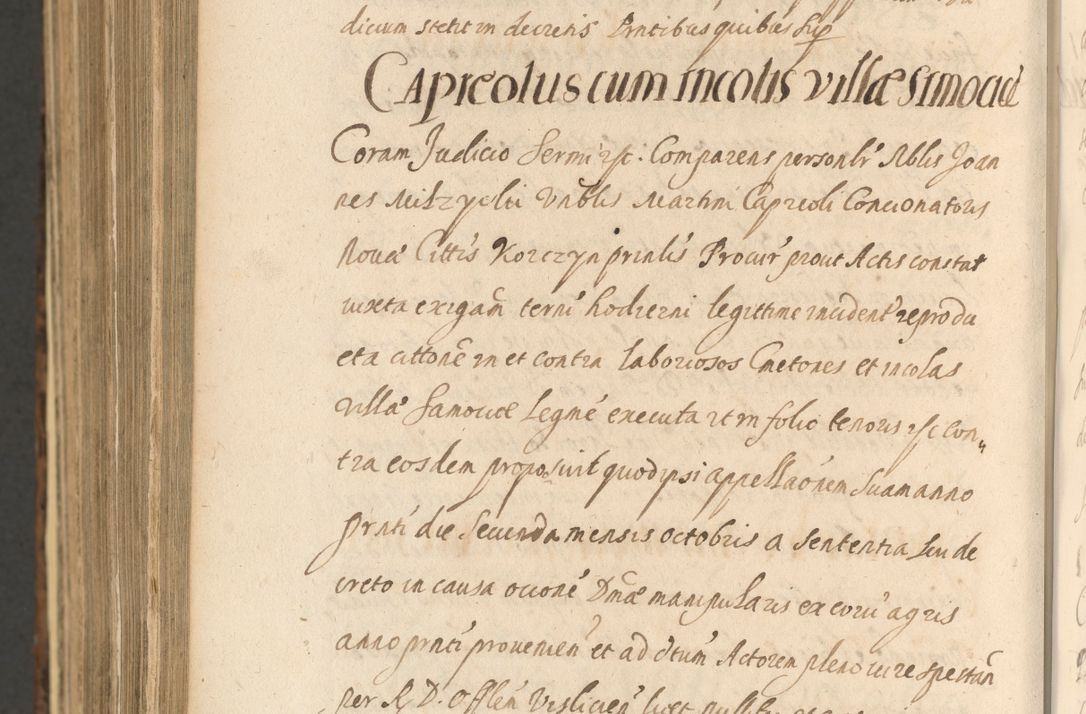 dicium stetit in decretis Prntibus quibus sup
Capreolus cum incolis villæ Simocice
Coram Judicio Sermi etc. Comparens personlr Nblis Joan
nes Milzyckii Vnblis Martini Capreoli Concionatoris
Novæ Cittis Korczyn prinlis Procur prout Actis constat
iuxta exigam termi hodierni legittime incident reprodu
cta cittone in et contra laboriosos Cmetones et incolas
villæ Samocice Legme executa et in folio tenoris etc con
tra eosdem proposuit quod ipsi appellaonem suam anno
prnti die Secunda mensis octobris a sententia seu de
creto in causa occone Dmæ manipularis ex eoru agris
anno prnti provenien et ad cttum Actorem pleno iure spectan
per R. D. Offlem Vislicien licet